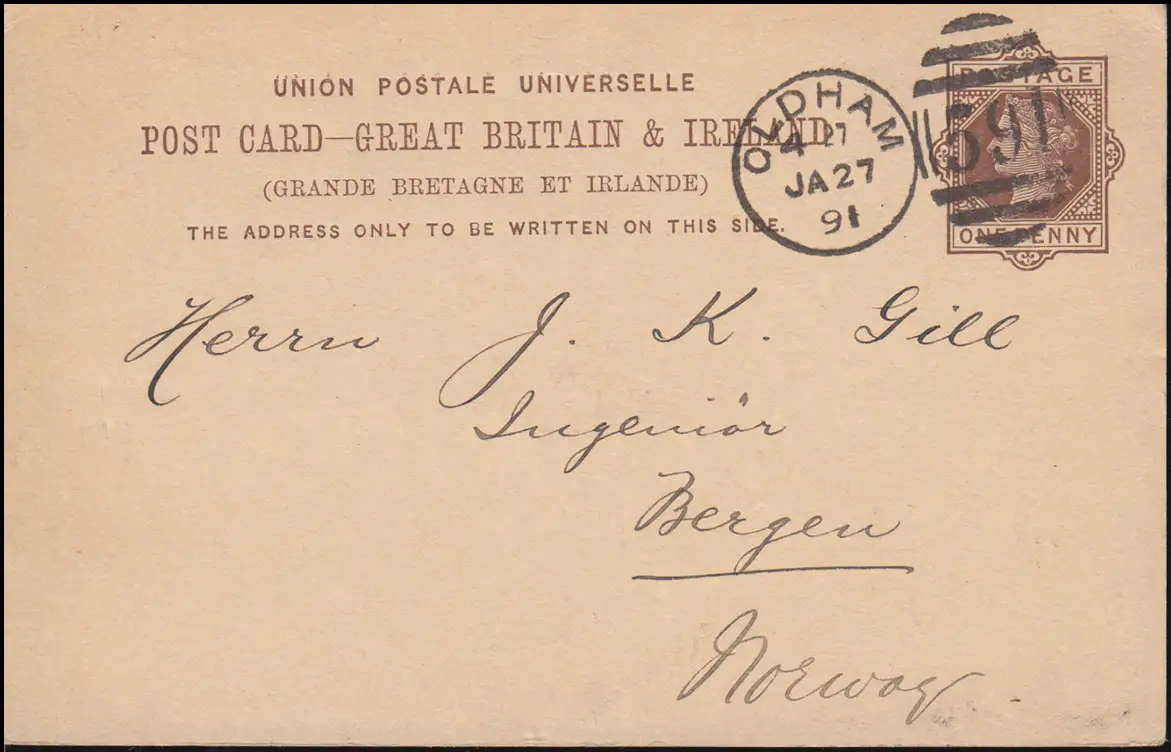 UNION POSTALE UNIVERSELLE
POST CARD—GREAT BRITAIN & IRELAND
(GRANDE BRETAGNE ET IRLANDE)
THE ADDRESS ONLY TO BE WRITTEN ON THIS SIDE.
OLDHAM
4 27
JA 27
91
591
POSTAGE
ONE PENNY
Herrn J. K. Gill
Ingeniör
Bergen
Norway